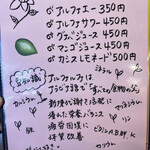 アルファエー 350円
アルファサワー 450円
グァバジュース 450円
マンゴジュース 450円
カシスレモネード 500円
豆知識
アルファルファは
アラビア語で「すべての食物の父」
ミネラル
カルシウム
動脈硬化謝と活発に
優れた栄養バランス
疲労回復に
体質改善
鉄
カリウム
ビタミンA,B群,K